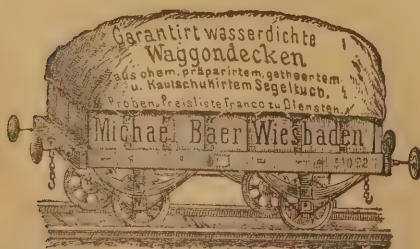 Garantirt wasserdichte
Waggondecken
aus chem. präparirtem, getheertem
u. Kautschukirtem Segeltuch.
Proben, Preisliste franco zu Diensten.
Michael Baer Wiesbaden